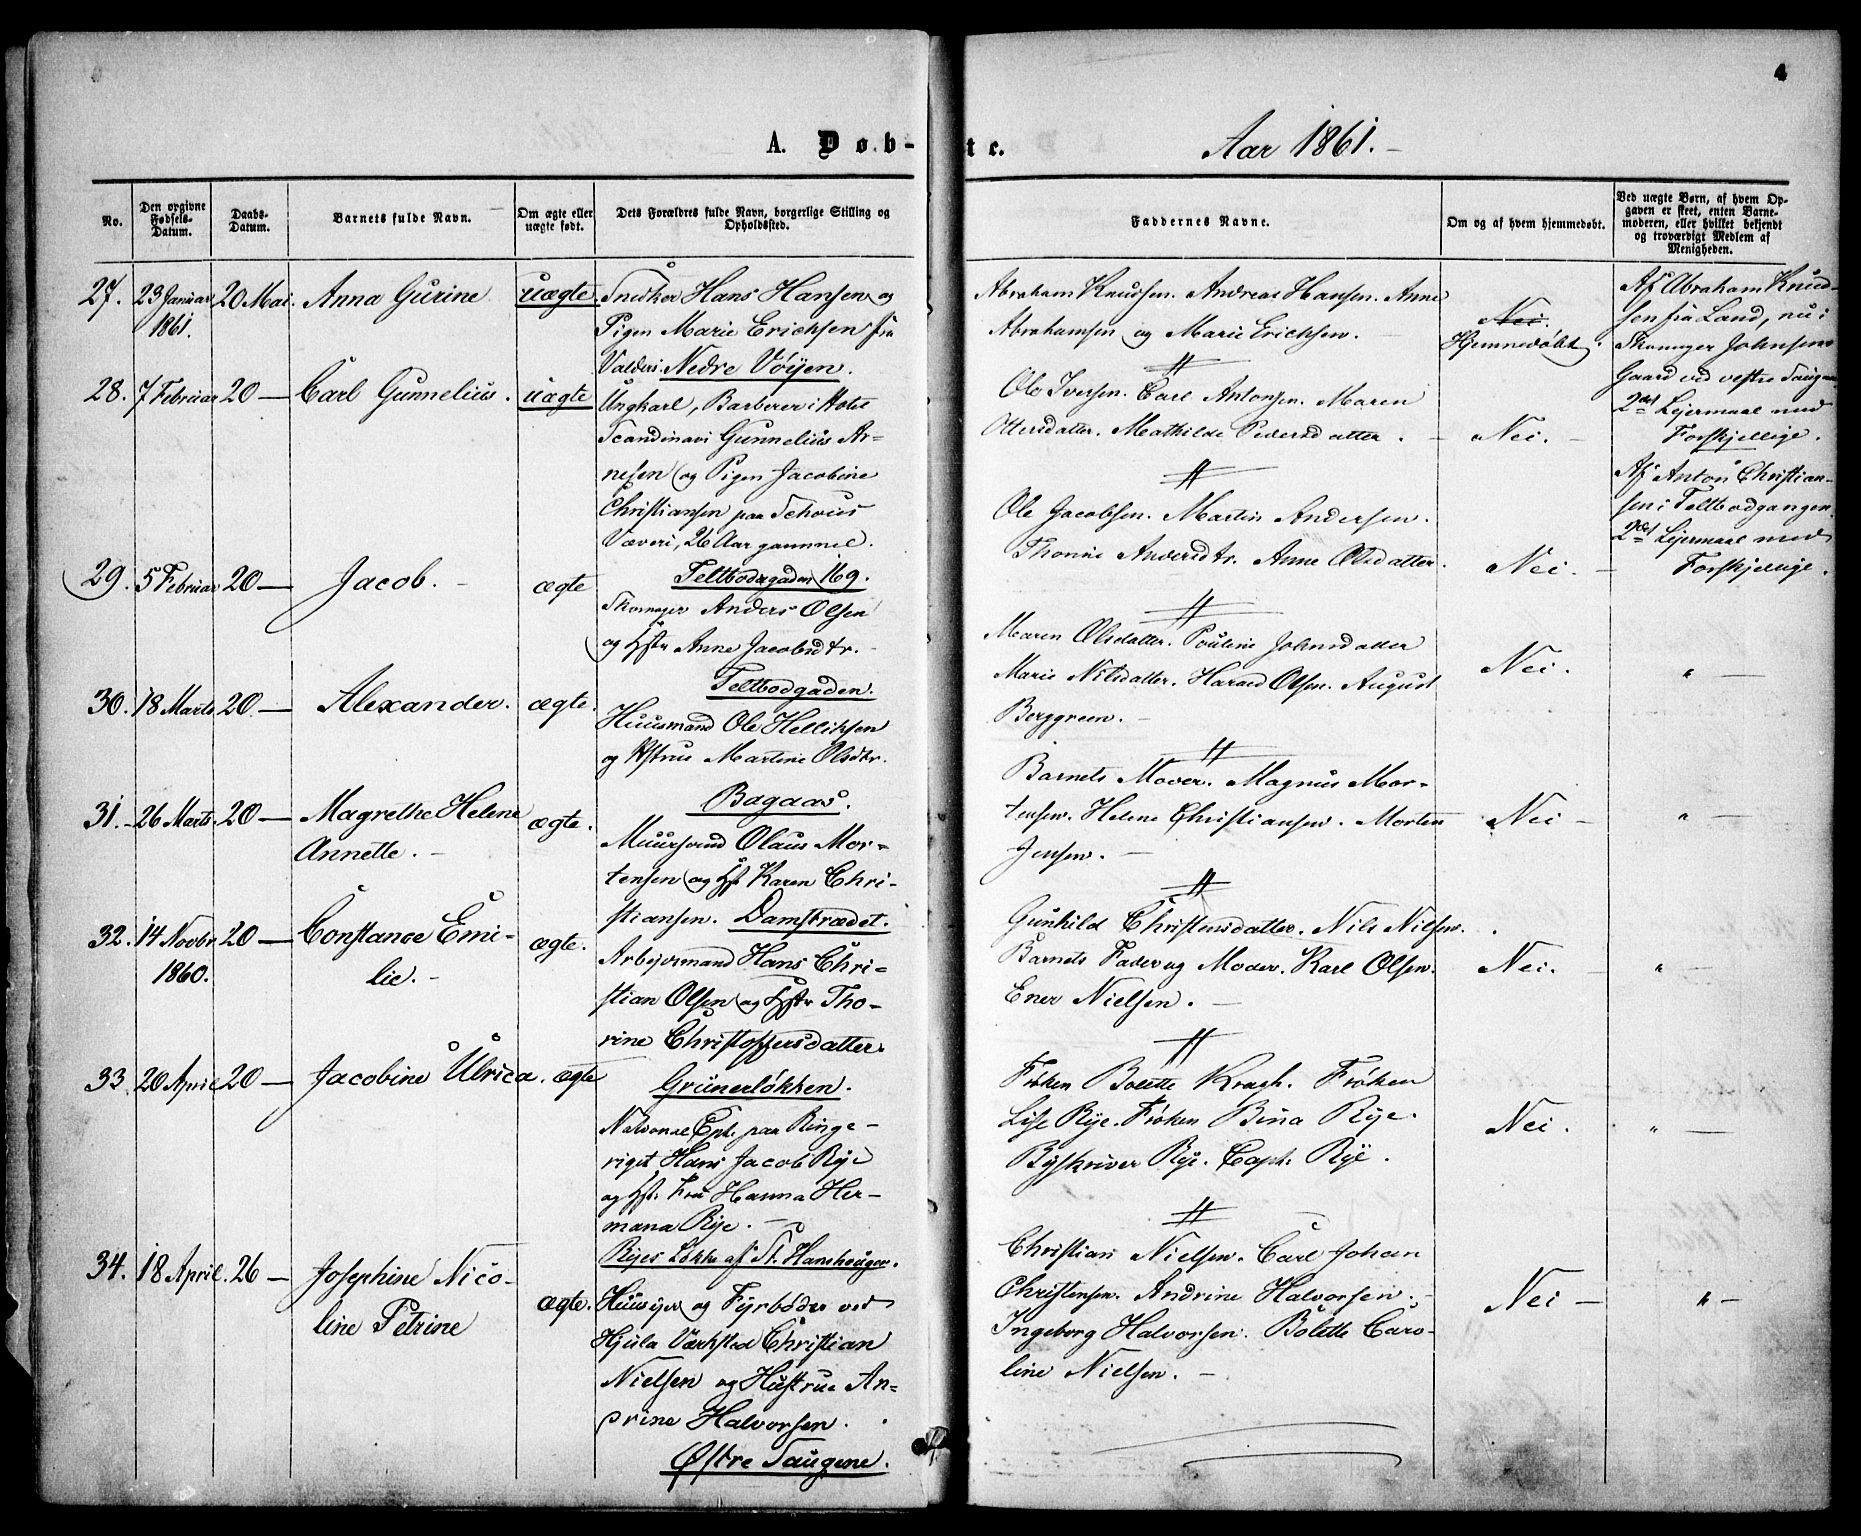 4
A. Døb-
te.
Aar 1861.
No.
Den opgivne
Fødsels-
Datum.
Daabs-
Datum.
Barnets fulde Navn.
Om ægte eller
uægte født.
Dets Forældres fulde Navn, borgerlige Stilling og
Opholdssted.
Faddernes Navne.
Om og af hvem hjemmedøbt.
Ved uægte Børn, af hvem Op-
gaven er skeet, enten Barne-
moderen, eller hvilket bekjendt
og troværdigt Medlem af
Menigheden.
27. 23 Januar 20 Mai. Anna Gurine uægte.
1861.
Snedker Hans Hansen og
Pigen Marie Erichsen fra
Valders. Nedre Vøyen.
Abraham Knudsen. Andreas Hansen. Anne
Abrahamsen og Marie Erichsen.
Nei.
Hjemmedøbt.
Af Abraham Knud-
sen fra Land, nu i
Skomager Johnsens
Gaard ved vestre
2det Lejermaal med
Forskjellige.
28. 7 Februar 20 — Carl Gunnelius. uægte
Ungkarl, Barberer i Hotel
Scandinavi Gunnelius Ar-
nesen og Pigen Jacobine
Christiansen paa Schous
Væveri, 26 Aar gammel.
Teltbodgaden 169.
Ole Iversen. Carl Antonsen. Maren
Ottersdatter. Mathilde Pedersdatter.
Nei.
Af Anton Christian-
sen i Teltbodgangen.
2det Lejermaal med
Forskjellige.
29. 5 Februar 20 — Jacob. ægte
Skomager Anders Olsen
og Hstr Anne Jacobsdtr.
Teltbodgaden.
Ole Jacobsen. Martin Andersen.
Thonie Andersdtr. Anne Olsdatter.
Nei.
30. 18 Marts 20 — Alexander. ægte.
Huusmand Ole Helliksen
og Hstru Martine Olsdtr.
Bagaas.
Maren Olsdatter. Pouline Johnsdatter
Marie Nilsdatter. Harald Olsen. August
Berggreen.
Nei. " —
31. 26 Marts. 20 — Magrethe Helene ægte.
Annette.
Muursvend Olaus Mor-
tensen og Hst Karen Chri-
stiansen. Damstrædet.
Barnets Moder. Magnus Mor-
tensen. Helene Christiansen. Morten
Jensen.
Nei — " —
32. 14 Novbr. 20 — Constance Emi- ægte.
1860. lie.
Arbejdsmand Hans Chri-
stian Olsen og Hstr Tho-
rine Christoffersdatter.
Grünerløkken.
Gunhild Christensdatter. Nils Nilsen.
Barnets Fader og Moder. Karl Olsen.
Ener Nielsen.
Nei. — " —
33. 20 April 20 — Jacobine Ulrica. ægte
National Cpt. paa Ringe-
riget Hans Jacob Rye
og Hst. Fru Hanna Her-
mana Rye.
Ryes Løkke af St. Hanshouger.
Frøken Bolette Kragh. Frøken
Lise Rye. Frøken Bina Rye.
Byskriver Rye. Capt. Rye.
Nei. " —
34. 18 April. 26 — Josephine Nico- ægte.
line Petrine
Huusejer og Fyrbøder ved
Hjula Værksted Christian
Nielsen og Hustrue An-
drine Halvorsen.
Østre Saugene.
Christian Nielsen. Carl Johan
Christensen. Andrine Halvorsen.
Ingeborg Halvorsen. Bolette Caro-
line Nielsen.
Nei — " —